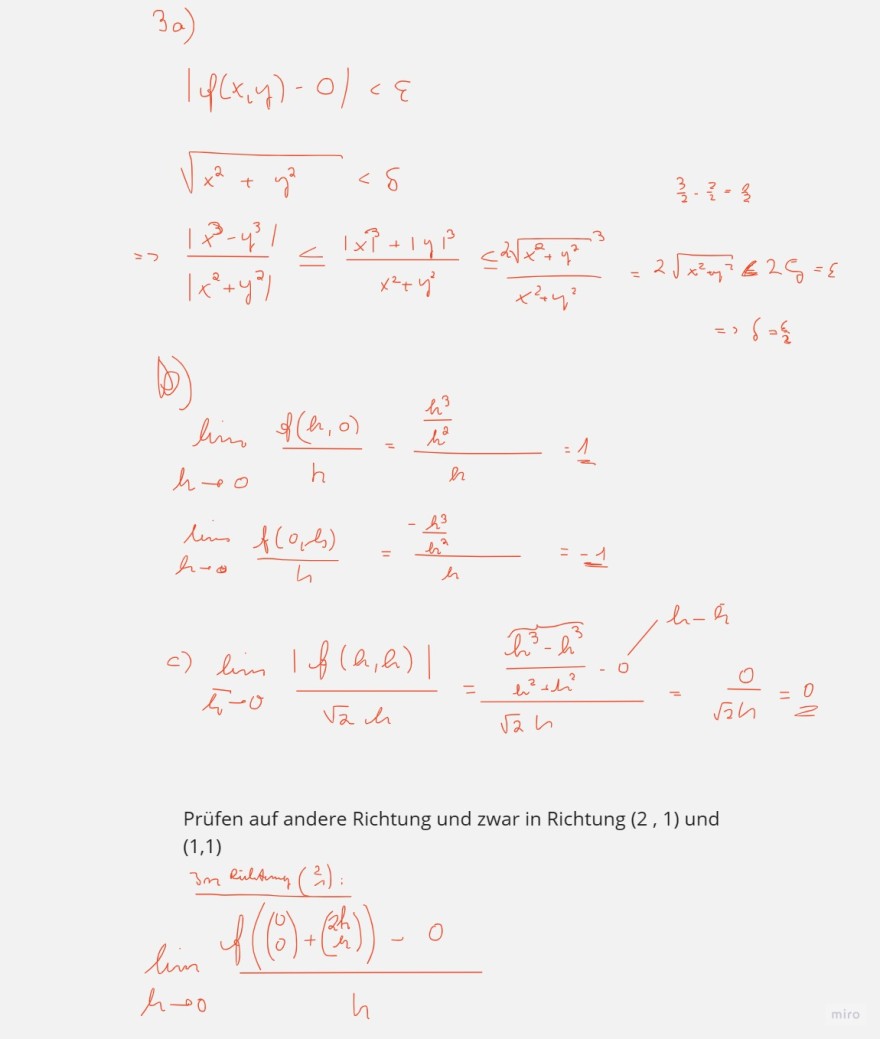 3a)
|f(x,y) - 0| < ε
√(x² + y²) < δ
3/2 - 2/2 =
=> |x³-y³| / |x²+y²| ≤ (|x|³ + |y|³) / (x²+y²) ≤ 2√(x²+y²)³ / (x²+y²) = 2√(x²+y²) < 2δ = ε
=> δ = ε/2
b)
lim h→0 f(h,0)/h = (h³/h²)/h = 1
lim h→0 f(0,h)/h = (-h³/h²)/h = -1
h - h
c) lim h→0 |f(h,h)| / (√2 h) = ((h³-h³)/(h²+h²) - 0) / (√2 h) = 0/(√2 h) = 0
Prüfen auf andere Richtung und zwar in Richtung (2 , 1) und
(1,1)
In Richtung (2 1):
lim h→0 (f((0 0)+(2h h)) - 0) / h
miro